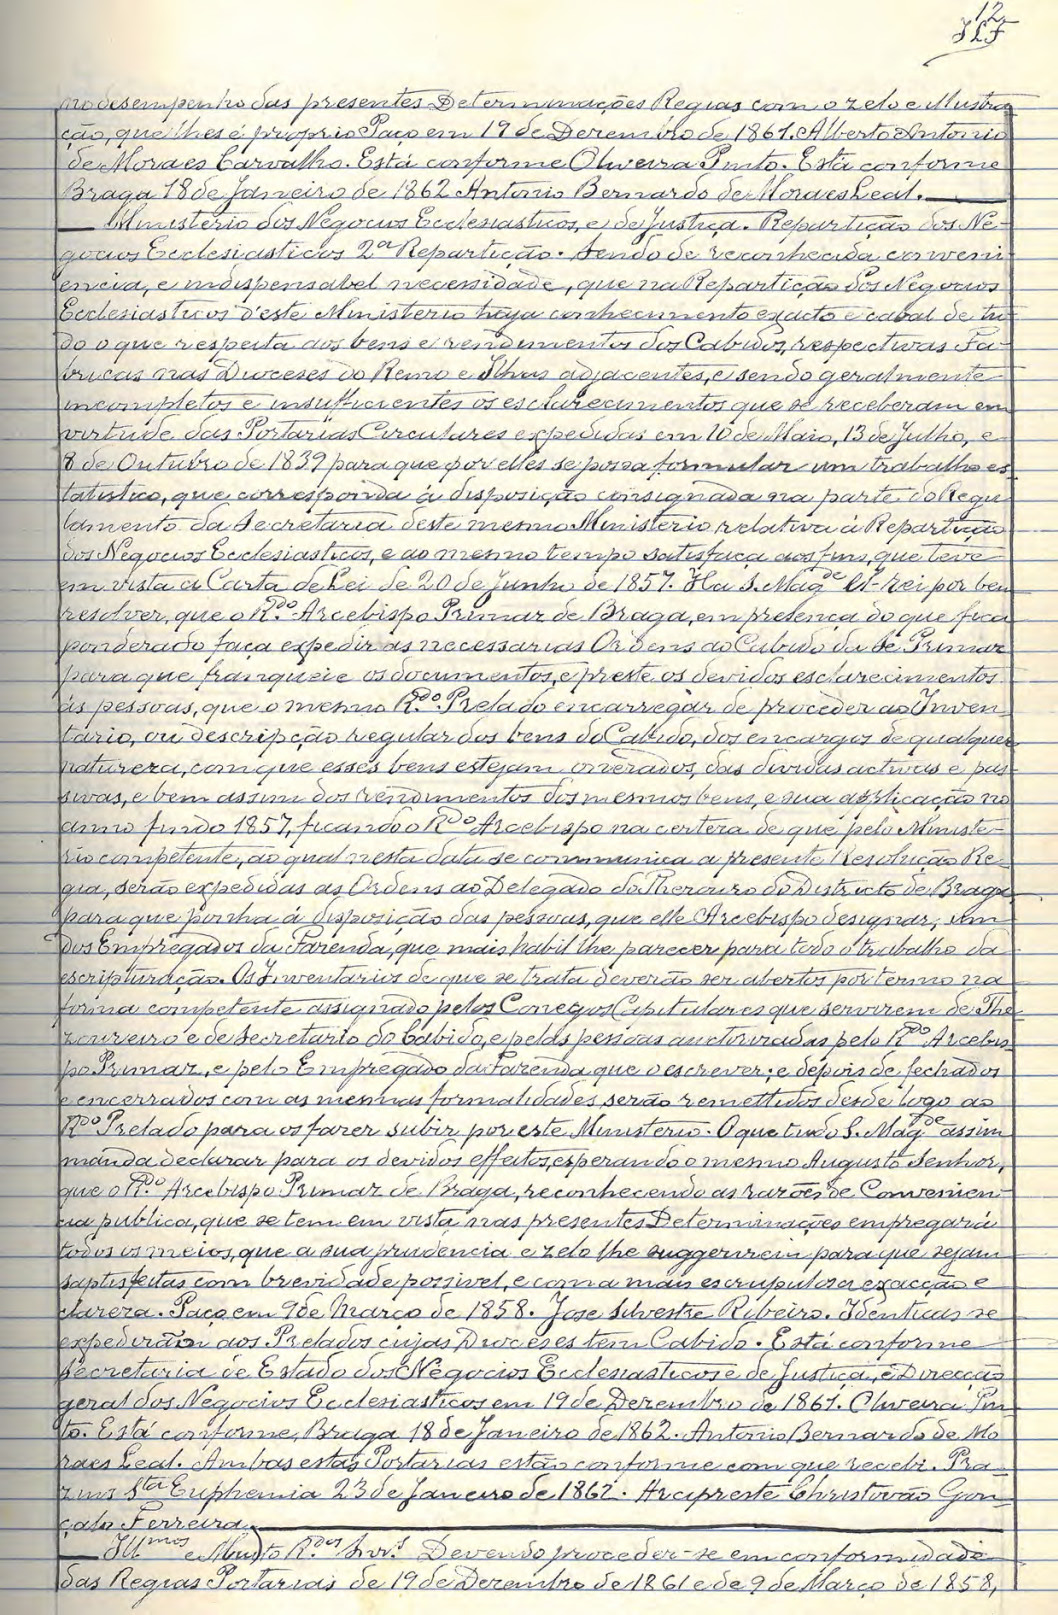 12
no desempenho das presentes Determinações Regias com o zelo e Illustra
ção, que lhes é proprio Paço em 19 de Dezembro de 1861. Alberto Antonio
de Moraes Carvalho. Está conforme Oliveira Pinto. Está conforme
Braga 18 de Janeiro de 1862 Antonio Bernardo de Moraes Leal.
Ministerio dos Negocios Ecclesiasticos, e de Justiça. Repartição dos Ne-
gocios Ecclesiasticos 2ª Repartição. Sendo de reconhecida conveni
encia, e indispensabel necessidade, que na Repartição dos Negocios
Ecclesiasticos d'este Ministerio haja conhecimento exacto e cabal de tu-
do o que respeita aos bens e rendimentos dos Cabidos, respectivas Fa-
bricas nas Dioceses do Reino e Ilhas adjacentes, e sendo geralmente
incompletos e insufficientes os esclarecimentos que se receberam em
virtude das Portarias Circulares expedidas em 10 de Maio, 13 de Julho, e
8 de Outubro de 1839 para que por elles se possa formular um trabalho es
tatistico, que corresponda á disposição consignada na parte do Regu
lamento da Secretaria deste mesmo Ministerio relativa á Repartição
dos Negocios Ecclesiasticos, e ao mesmo tempo satisfaça aos fins, que teve
em vista a Carta de Lei de 20 de Junho de 1857. Ha S. Magde El-rei por bem
resolver, que o Rdo Arcebispo Primaz de Braga, em presença do que fica
ponderado faça expedir as necessarias Ordens ao Cabido da Sé Primaz
para que franqueie os documentos, e preste os devidos esclarecimentos
ás pessoas, que o mesmo Rdo Prelado encarregar de proceder ao Inven-
tario, ou descripção regular dos bens do Cabido, dos encargos de qualquer
natureza, com que esses bens estejam onerados, das dividas activas e pas-
sivas, e bem assim dos rendimentos dos mesmos bens, e sua applicação no
anno findo 1857, ficando o Rdo Arcebispo na certeza de que pelo Ministe-
rio competente, ao qual nesta data se communica a presente Resolução Re-
gia, serão expedidas as Ordens ao Delegado do Thezouro do Districto de Braga
para que ponha á disposição das pessoas, que elle Arcebispo designar, um
dos Empregados da Fazenda, que mais habil lhe parecer para todo o trabalho da
escripturação. Os Inventarios de que se trata deverão ser abertos por termo na
forma competente assignado pelos Conegos Capitulares que servirem de The-
zoureiro e de Secretario do Cabido, e pelas pessoas auctorizadas pelo Rdo Arcebis-
po Primaz, e pelo Empregado da Fazenda que o escrever; e depois de fechados
e encerrados com as mesmas formalidades, serão remettidos desde logo ao
Rdo Prelado para os fazer subir por este Ministerio. O que tudo S. Magde assim
manda declarar para os devidos effeitos, esperando o mesmo Augusto Senhor,
que o Rdo Arcebispo Primaz de Braga, reconhecendo as razões de Convenien-
cia publica, que se tem em vista nas presentes Determinações empregará
todos os meios, que a sua prudencia e zelo lhe suggerirem para que sejam
saptisfeitas com brevidade possivel, e com a mais escrupuloza exacção e
clareza. Paço em 9 de Março de 1858. Jose Silvestre Ribeiro. Identicas se
expedirão aos Prelados cujas Dioceses tem Cabido. Está conforme
Secretaria de Estado dos Negocios Ecclesiasticos e de Justiça, e Direcção
geral dos Negocios Ecclesiasticos em 19 de Dezembro de 1861. Oliveira Pin-
to. Está conforme, Braga 18 de Janeiro de 1862. Antonio Bernardo de Mo
raes Leal. Ambas estas Portarias estão conforme com que recebi. Pra-
zins Sta Euphemia 23 de Janeiro de 1862. Arcipreste Christovão Gon-
çalo Ferreira.
Illmos e Muito Rdos Snrs Devendo proceder-se em conformidade
das Regias Portarias de 19 de Dezembro de 1861 e de 9 de Março de 1858,